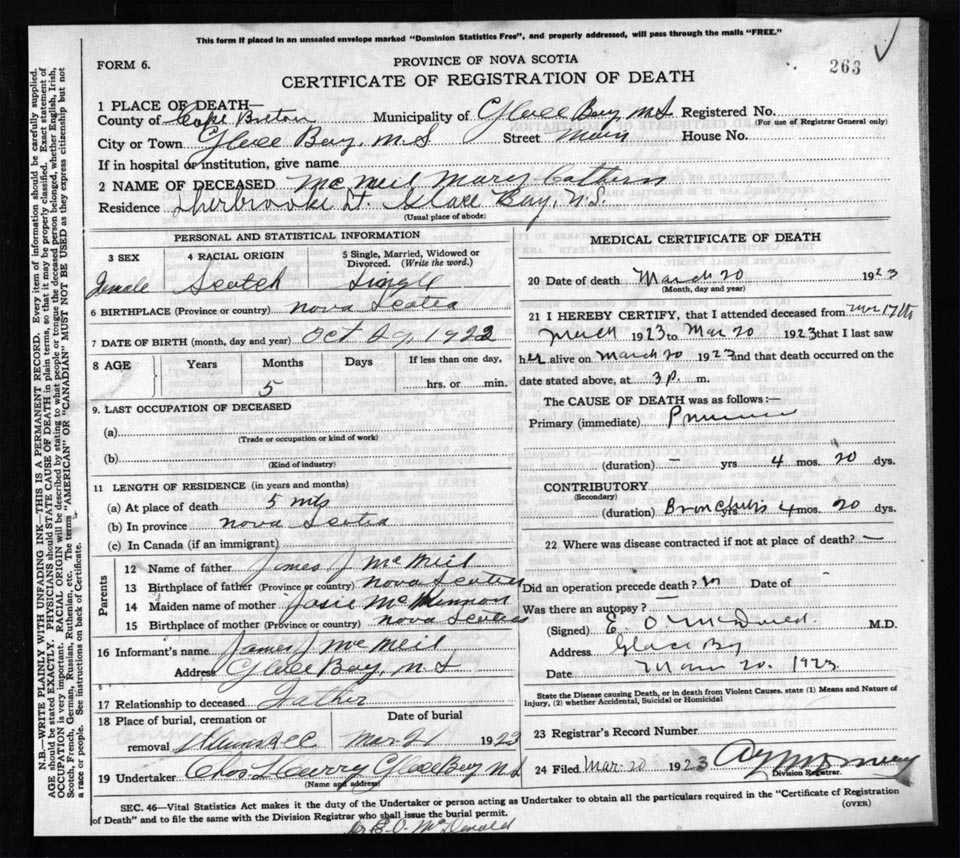 This form if placed in an unsealed envelope marked "Dominion Statistics Free", and properly addressed, will pass through the mails "FREE."
FORM 6.
PROVINCE OF NOVA SCOTIA
263
CERTIFICATE OF REGISTRATION OF DEATH
1 PLACE OF DEATH—
County of Cape Breton Municipality of Glace Bay, N.S. Registered No.
(For use of Registrar General only)
City or Town Glace Bay, N.S Street Main House No.
If in hospital or institution, give name
2 NAME OF DECEASED McNeil Mary
Residence Sherbrooke St. Glace Bay, N.S.
(Usual place of abode)
PERSONAL AND STATISTICAL INFORMATION
3 SEX 4 RACIAL ORIGIN 5 Single, Married, Widowed or Divorced. (Write the word.)
Female Scotch Single
6 BIRTHPLACE (Province or country) Nova Scotia
7 DATE OF BIRTH (month, day and year) Oct 29, 1922
8 AGE Years Months Days If less than one day,
5 hrs. or min.
9. LAST OCCUPATION OF DECEASED
(a)
(Trade or occupation or kind of work)
(b)
(Kind of industry)
11 LENGTH OF RESIDENCE (in years and months)
(a) At place of death 5 mts
(b) In province Nova Scotia
(c) In Canada (if an immigrant)
Parents
12 Name of father James J McNeil
13 Birthplace of father (Province or country) Nova Scotia
14 Maiden name of mother Josie McKinnon
15 Birthplace of mother (Province or country) Nova Scotia
16 Informant's name James J McNeil
Address Glace Bay, N S
17 Relationship to deceased Father
18 Place of burial, cremation or Date of burial
removal Mar 21 1923
19 Undertaker Chas Curry Glace Bay N S
(Name and address)
MEDICAL CERTIFICATE OF DEATH
20 Date of death March 20 1923
(Month, day and year)
21 I HEREBY CERTIFY, that I attended deceased from Mar 17th
1923 to Mar 20 1923 that I last saw
her alive on March 20 1923 and that death occurred on the
date stated above, at 3 p. m.
The CAUSE OF DEATH was as follows:—
Primary (immediate)
(duration) – yrs 4 mos. 20 dys.
CONTRIBUTORY
(Secondary)
Bronchitis
(duration) yrs. 4 mos. 20 dys.
22 Where was disease contracted if not at place of death? —
Did an operation precede death? no Date of -
Was there an autopsy? —
(Signed) E. O. McDonald. M.D.
Address Glace Bay
Date March 20. 1923
State the Disease causing Death, or in death from Violent Causes, state (1) Means and Nature of
Injury, (2) whether Accidental, Suicidal or Homicidal
23 Registrar's Record Number
24 Filed Mar 20 1923
Division Registrar.
SEC. 46—Vital Statistics Act makes it the duty of the Undertaker or person acting as Undertaker to obtain all the particulars required in the "Certificate of Registration
of Death" and to file the same with the Division Registrar who shall issue the burial permit.
(OVER)
Dr E. O. McDonald
N.B.—WRITE PLAINLY WITH UNFADING INK—THIS IS A PERMANENT RECORD. Every item of information should be carefully supplied.
AGE should be stated EXACTLY. PHYSICIANS should STATE CAUSE OF DEATH in plain terms, so that it may be properly classified. Exact statement of
OCCUPATION is very important. RACIAL ORIGIN will be described by stating to what people or tongue the deceased person belonged, whether English, Irish,
Scotch, French, German, Russian, Ruthenian, etc. The terms "AMERICAN" OR "CANADIAN" MUST NOT BE USED as they express citizenship but not
a race or people. See instructions on back of Certificate.